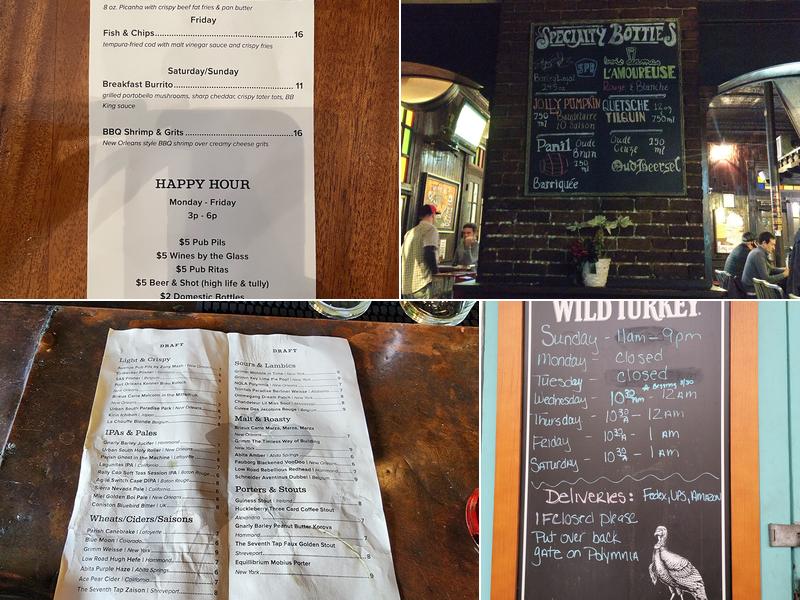 8 oz. Picanha with crispy beef fat fries & pan butter
Friday
Fish & Chips 16
tempura-fried cod with malt vinegar sauce and crispy fries
Saturday/Sunday
Breakfast Burrito 11
grilled portobello mushrooms, sharp cheddar, crispy tater tots, BB
King sauce
BBQ Shrimp & Grits 16
New Orleans style BBQ shrimp over creamy cheese grits
HAPPY HOUR
Monday - Friday
3p - 6p
$5 Pub Pils
$5 Wines by the Glass
$5 Pub Ritas
$5 Beer & Shot (high life & tully)
$2 Domestic Bottles
SPECIALTY BOTTLES
L'AMOUREUSE
Rouge & Blanche
JOLLY PUMPKIN
750 ml
QUETSCHE
TILQUIN
12 oz
750 ml
Panil
Oude
Bruin
750 ml
Barriquée
Oude
Geuze
250 ml
Oud Beersel
DRAFT
Light & Crispy
Urban South Paradise Park | New Orleans
Kirin Ichiban | Japan
La Chouffe Blonde Belgium
IPAs & Pales
Gnarly Barley Jucifer | Hammond
Urban South Holy Roller | New Orleans
Parish Ghost in the Machine | Lafayette
Lagunitas IPA | California
Rally Cap Soft Toss Session IPA | Baton Rouge
Agile Switch Case DIPA | Baton Rouge
Sierra Nevada Pale | California
Miel Golden Boi Pale | New Orleans
Coniston Bluebird Bitter | UK
Wheats/Ciders/Saisons
Parish Canebrake | Lafayette
Blue Moon | Colorado
Grimm Weisse | New York
Low Road Hugh Hefe | Hammond
Abita Purple Haze | Abita Springs
Ace Pear Cider | California
The Seventh Tap Zaison | Shreveport
DRAFT
Sours & Lambics
Grimm Key Lime Pie Pop! | New York
NOLA Polymnia | New Orleans
Ommegang Dream Patch | New York
Chandeleur Lil Miss Sour | Mississippi
Cuvee Des Jacobins Rouge | Belgium
Malt & Roasty
Brieux Carre Marza, Marza, Marza
New Orleans
Grimm The Timless Way of Building
New York
Abita Amber | Abita Springs
Faubourg Blackened VooDoo | New Orleans
Low Road Rebellious Redhead | Hammond
Schneider Aventinus Dubbel | Belgium
Porters & Stouts
Guiness Stout | Ireland
Huckleberry Three Card Coffee Stout
Alexandria
Gnarly Barley Peanut Butter Korova
Hammond
The Seventh Tap Faux Golden Stout
Shreveport
Equillibrium Mobius Porter
New York
WILD TURKEY.
Sunday - 11am - 9pm
Monday - closed
Tuesday - closed
Wednesday - 10 30 AM - 12 AM
Thursday - 10 30 A - 12AM
Friday - 10 30 A - 1 AM
Saturday - 10 30 A - 1 AM
Deliveries: Fedex, UPS, Amazon
If closed please
Put over back
gate on Polymnia